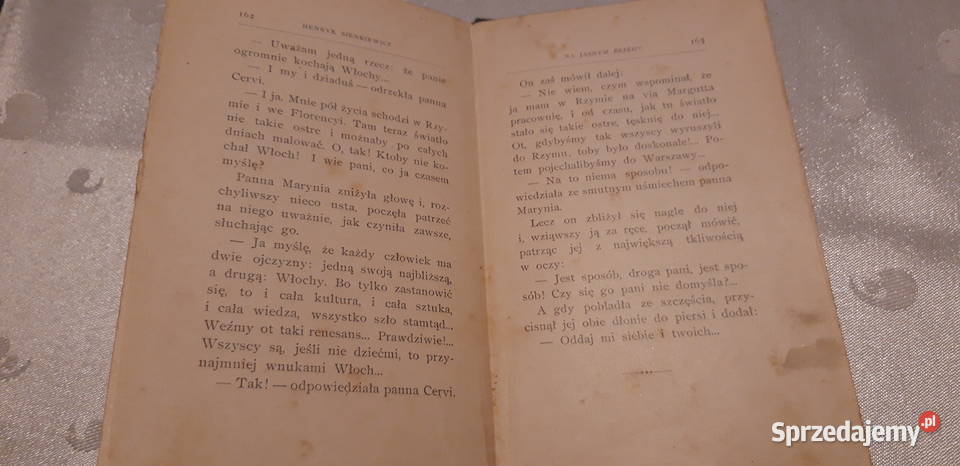 162
HENRYK SIENKIEWICZ
— Uważam jedną rzecz: że panie
ogromnie kochają Włochy...
— I my i dziaduś — odrzekła panna
Cervi.
— I ja. Mnie pół życia schodzi w Rzy-
mie i we Florencyi. Tam teraz światło
nie takie ostre i możnaby po całych
dniach malować. O, tak! Ktoby nie ko-
chał Włoch! I wie pani, co ja czasem
myślę?
Panna Marynia zniżyła głowę i, roz-
chyliwszy nieco usta, poczęła patrzeć
na niego uważnie, jak czyniła zawsze,
słuchając go.
— Ja myślę, że każdy człowiek ma
dwie ojczyzny: jedną swoją najbliższą,
a drugą: Włochy. Bo tylko zastanowić
się, to i cała kultura, i cała sztuka,
i cała wiedza, wszystko szło stamtąd...
Weźmy ot taki renesans... Prawdziwie!...
Wszyscy są, jeśli nie dziećmi, to przy-
najmniej wnukami Włoch...
— Tak! — odpowiedziała panna Cervi.
NA JASNYM BRZEGU
163
On zaś mówił dalej:
— Nie wiem, czym wspominał, że
ja mam w Rzymie na via Margutta
pracownię, i od czasu, jak tu światło
stało się takie ostre, tęsknię do niej...
Ot, gdybyśmy tak wszyscy wyruszyli
do Rzymu, toby było doskonale!... Po-
tem pojechalibyśmy do Warszawy...
— Na to niema sposobu! — odpo-
wiedziała ze smutnym uśmiechem panna
Marynia.
Lecz on zbliżył się nagle do niej
i, wziąwszy ją za ręce, począł mówić,
patrząc jej z największą tkliwością
w oczy:
— Jest sposób, droga pani, jest spo-
sób! Czy się go pani nie domyśla?...
A gdy pobladła ze szczęścia, przy-
cisnął jej obie dłonie do piersi i dodał:
— Oddaj mi siebie i twoich...
Sprzedajemy.pl